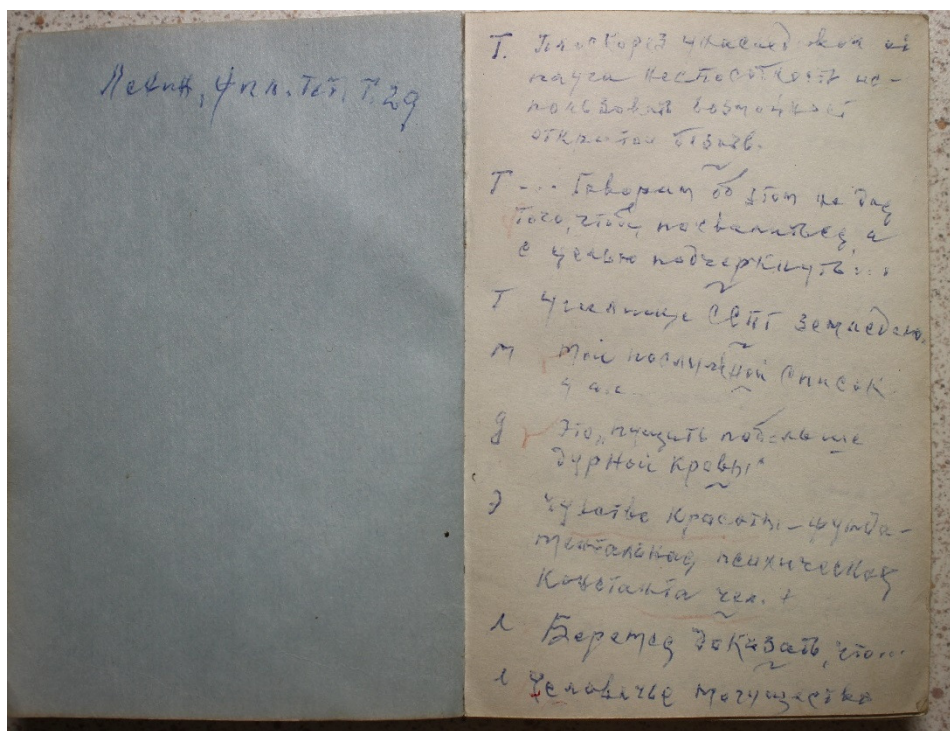 Ленин, Фил. тет. Т. 29
Т.
наука неспособность ис-
пользовать возможност
открытой
Т... Говорит об этом не для
того, чтобы похвалиться, а
с целью подчеркнуть...
Т СЕПГ
м Мой послужной список
д Это „пущить побольше
дурной крови“
Э Чувство красоты – фунда-
ментальная психическая
константа чел. +
л Берется доказать, что...
л Человечье могущество